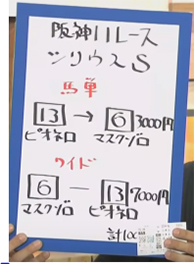 阪神11レース
シリウスS
馬単
13 → 6 3000円
ピオネロ マスクゾロ
ワイド
6 — 13 7000円
マスクゾロ ピオネロ
計100